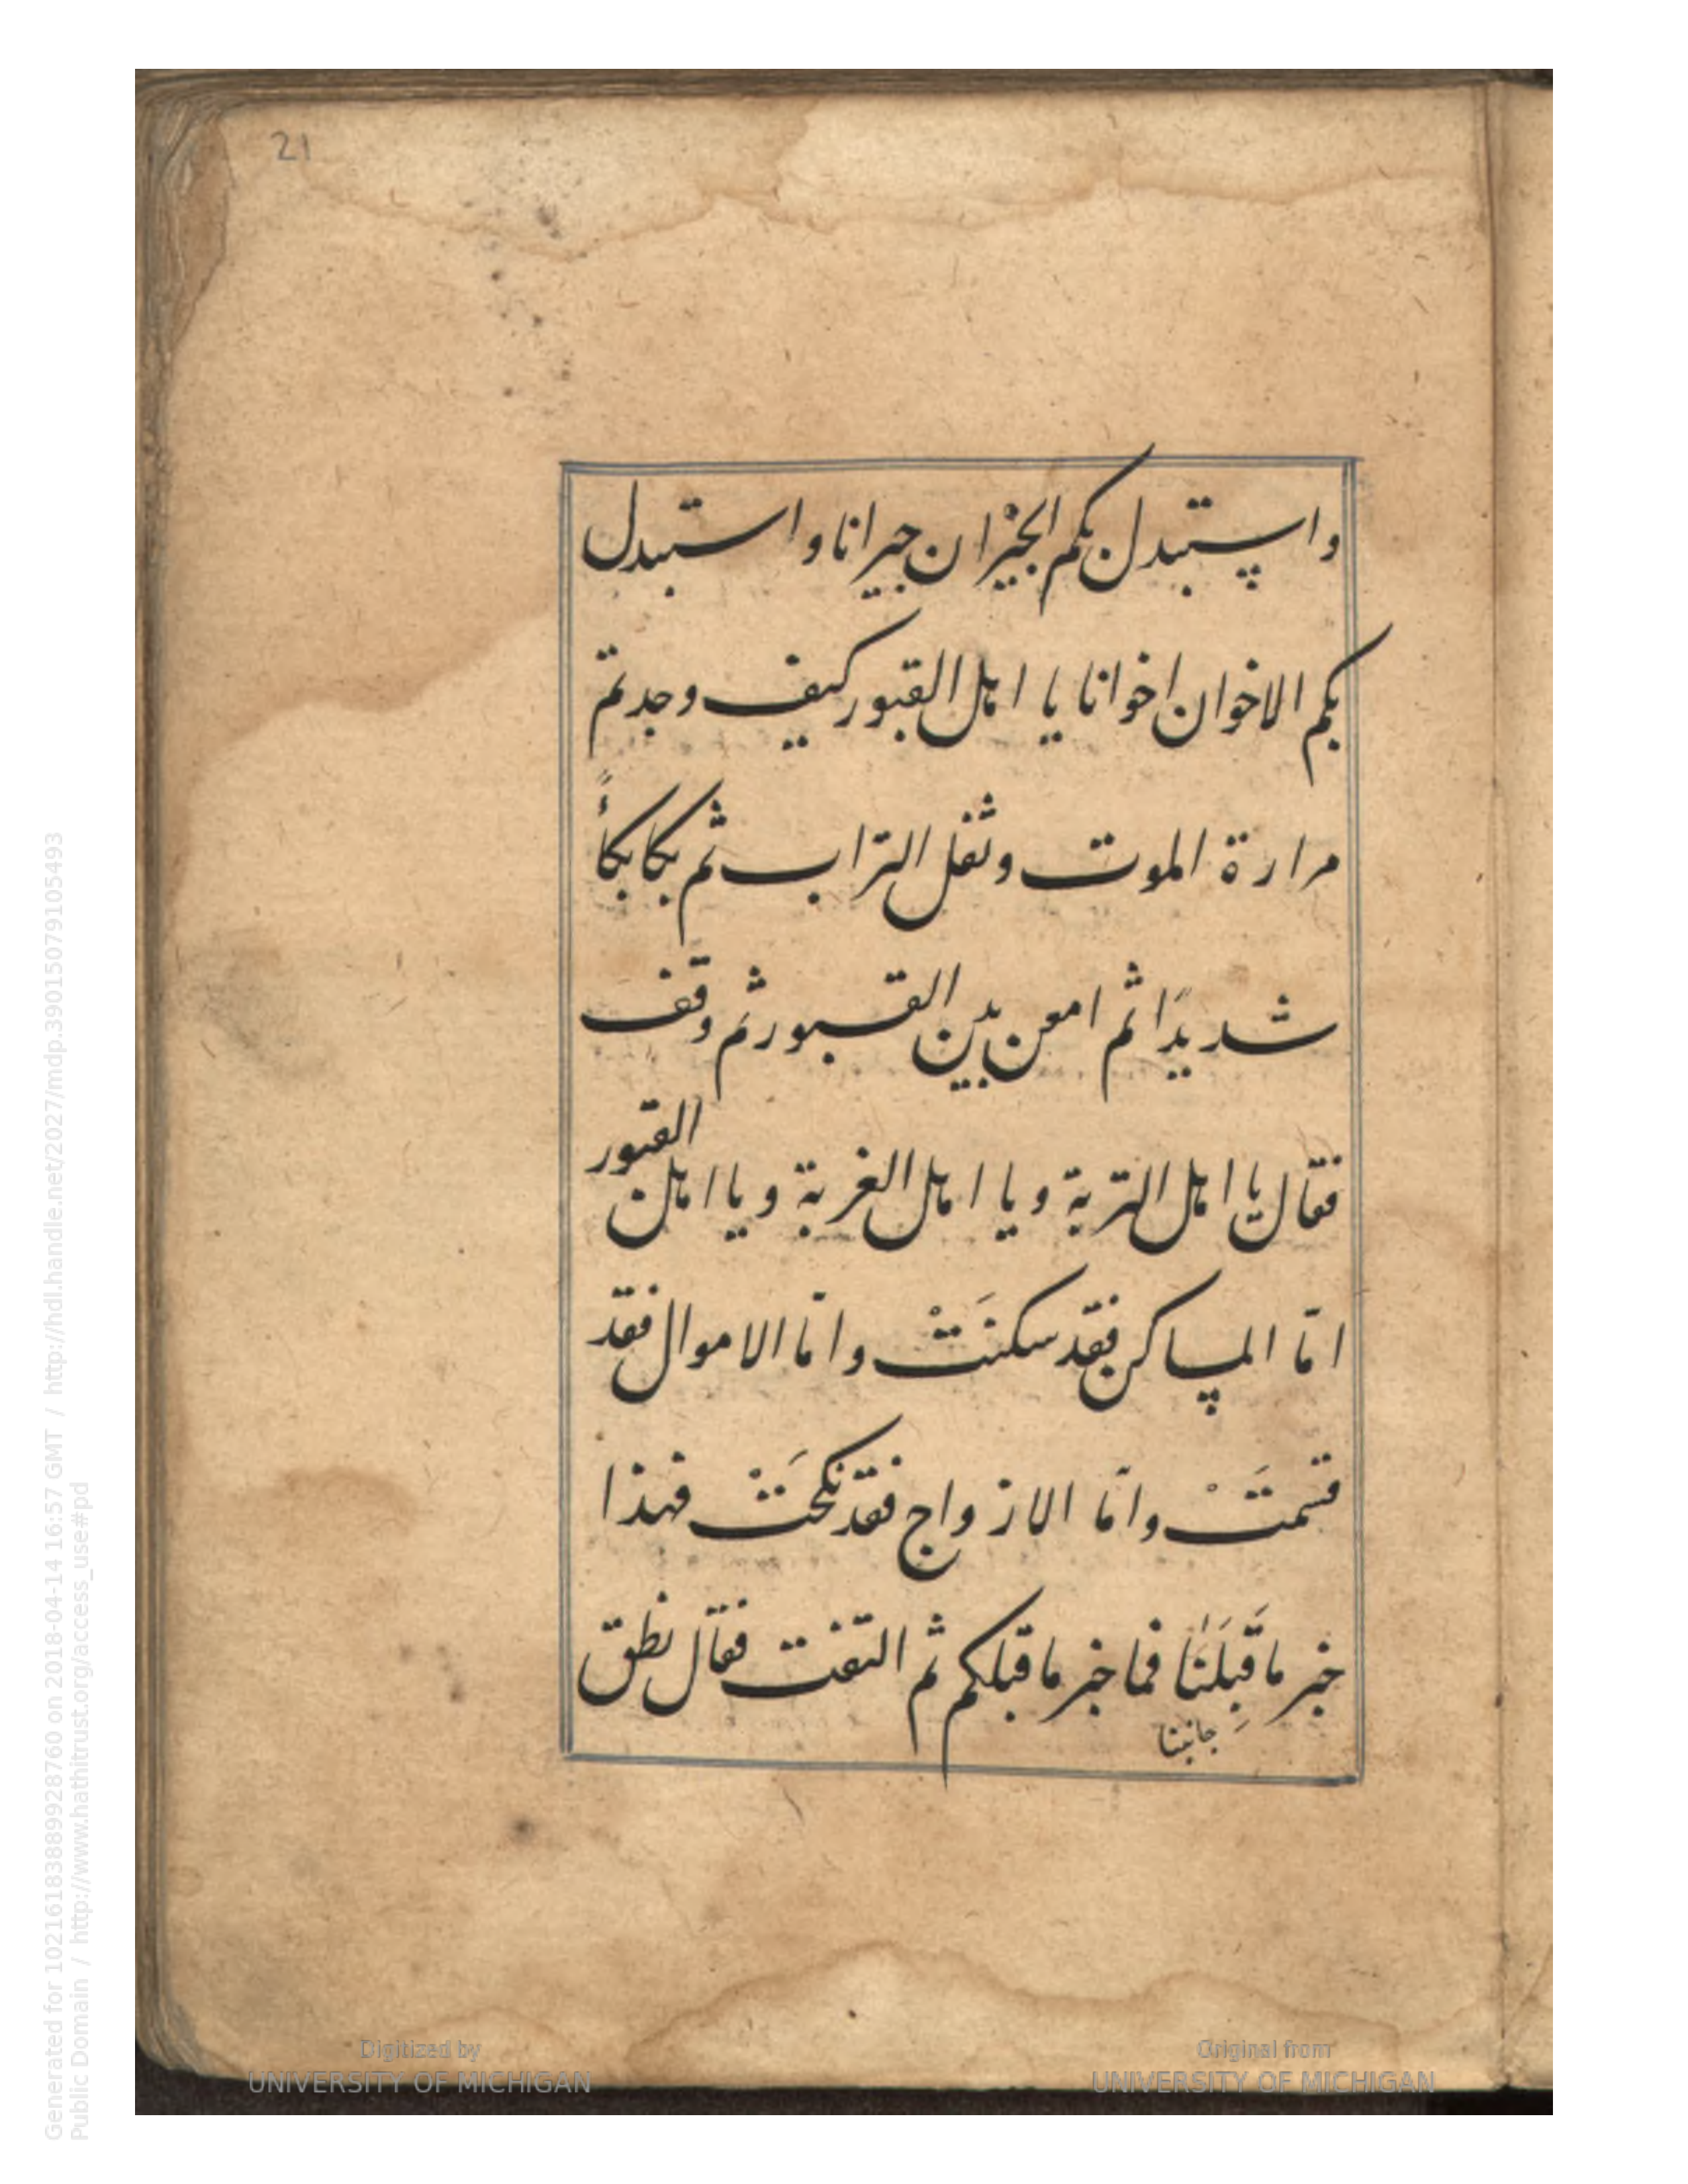 21
واستبدل بكم الجيران جيرانا واستبدل
بكم الاخوان اخوانا يا اهل القبور كيف وجدتم
مرارة الموت وثقل التراب ثم بكا بكاءً
شديدًا ثم امعن بين القبور ثم وقف
فقال يا اهل التربة ويا اهل الغربة ويا اهل القبور
امّا المساكن فقد سكنَتْ وامّا الاموال فقد
قسمَتْ وامّا الازواج فقد نكحَتْ فهذا
خبر ما قِبَلَنَا فما خبر ما قبلكم ثم التفت فقال نطق
جانبنا
Generated for 102161838899928760 on 2018-04-14 16:57 GMT / http://hdl.handle.net/2027/mdp.39015079105493
Public Domain / http://www.hathitrust.org/access_use#pd
Digitized by
UNIVERSITY OF MICHIGAN
Original from
UNIVERSITY OF MICHIGAN